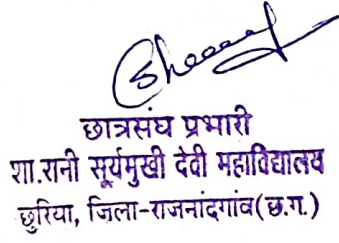 छात्रसंघ प्रभारी
शा.रानी सूर्यमुखी देवी महाविद्यालय
छुरिया, जिला-राजनांदगांव(छ.ग.)